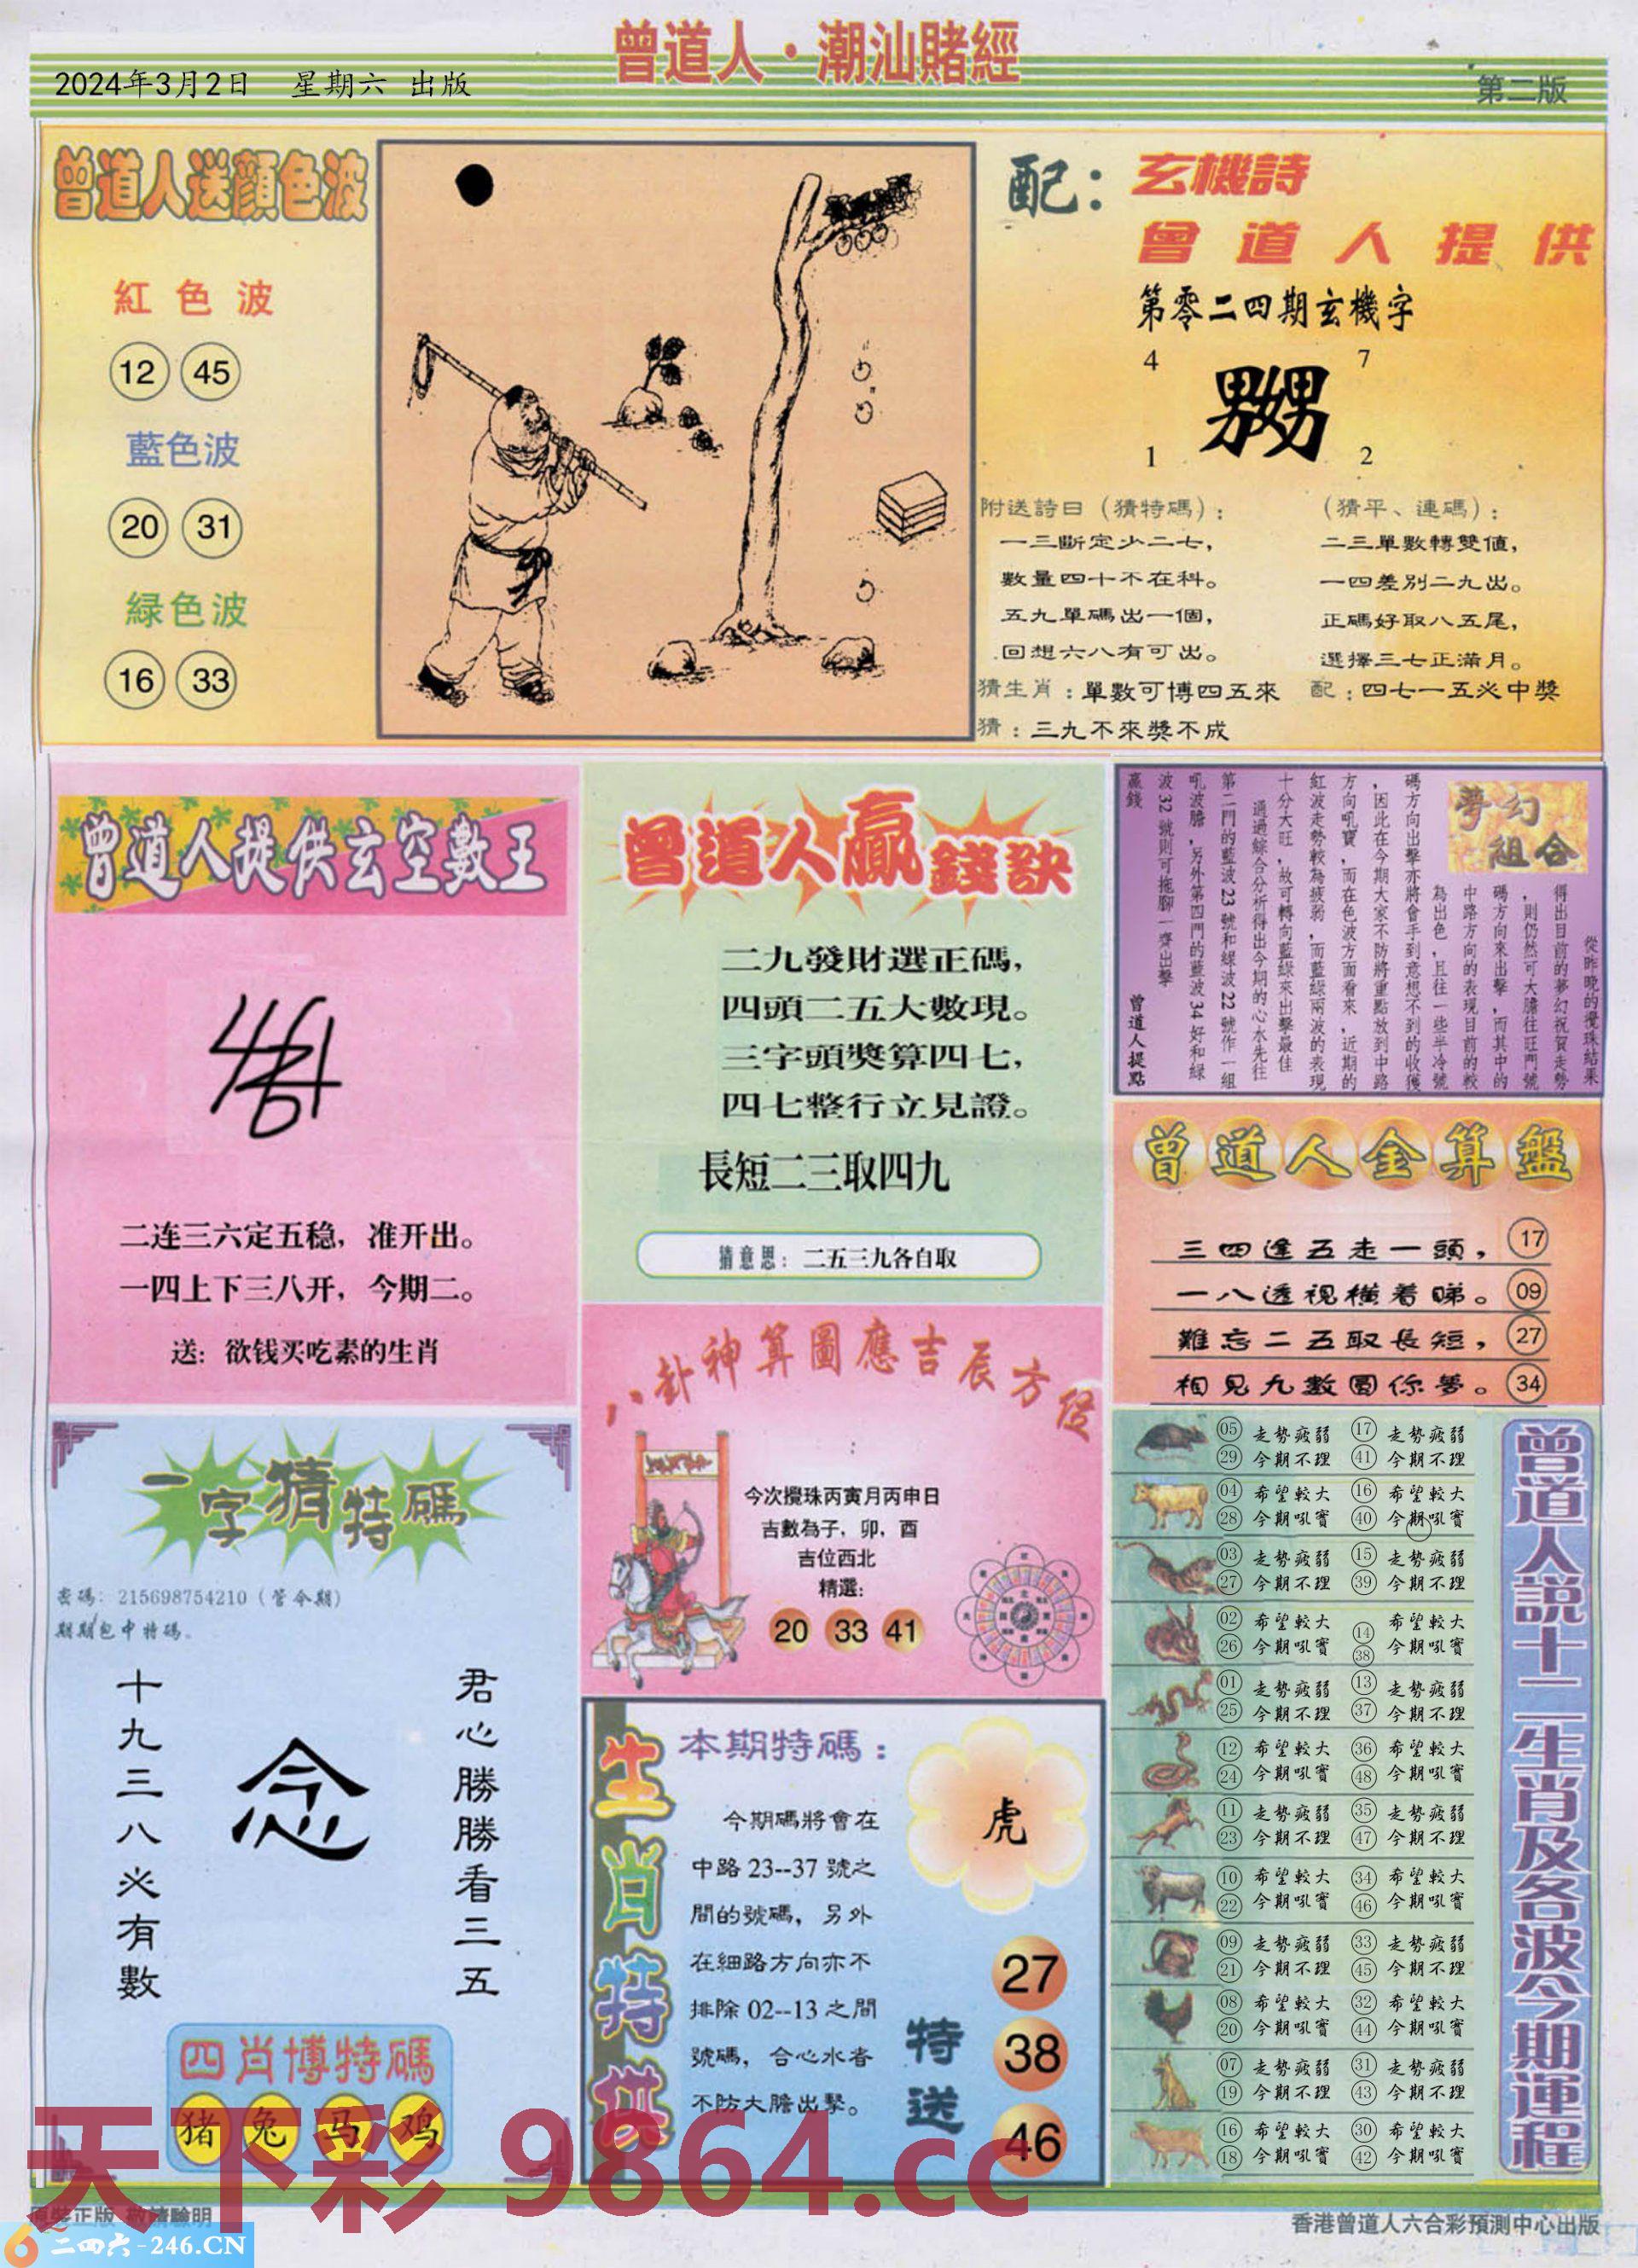 曾道人·潮汕賭經
2024年3月2日 星期六 出版
第二版
曾道人送顔色波
紅色波
12 45
藍色波
20 31
緑色波
16 33
配：玄機詩
曾道人提供
第零二四期玄機字
4 7
嬲
1 2
附送詩日（猜特碼）：
一三斷定少二七，
數量四十不在科。
五九單碼出一個，
回想六八有可出。
（猜平、連碼）：
二三單數轉雙值，
一四差別二九出。
正碼好取八五尾，
選擇三七正滿月。
猜生肖：單數可博四五來
配：四七一五必中獎
猜：三九不來獎不成
曾道人提供玄空數王
二连三六定五稳，准开出。
一四上下三八开，今期二。
送：欲钱买吃素的生肖
曾道人贏錢訣
二九發財選正碼，
四頭二五大數現。
三字頭獎算四七，
四七整行立見證。
長短二三取四九
猜意思：二五三九各自取
夢幻
組合
從昨晚的攪珠結果
得出目前的夢幻祝賀走勢
，則仍然可大膽往旺門號
碼方向來出擊，而其中的
中路方向的表現目前的較
為出色，且往一些半冷號
碼方向出擊亦將會手到意想不到的收獲
，因此在今期大家不防將重點放到中路
方向吼寶，而在色波方面看來，近期的
紅波走勢較為疲弱，而藍綠兩波的表現
十分大旺，故可轉向藍綠來出擊最佳
通過綜合分析得出今期的心水先往
第二門的藍波23號和綠波22號作一組
吼波膽，另外第四門的藍波34好和綠
波32號則可拖腳一齊出擊
贏錢
曾道人提點
曾道人金算盤
三四逢五走一頭， 17
一八透視橫着睇。 09
難忘二五取長短， 27
相見九數圓你夢。 34
八卦神算圖應吉辰方位
今次攪珠丙寅月丙申日
吉數為子，卯，酉
吉位西北
精選：
20 33 41
一字猜特碼
密碼：215698754210（管今期）
期期包中特碼。
君心勝勝看三五
念
十九三八必有數
四肖博特碼
猪 兔 马 鸡
生肖特供
本期特碼：
今期碼將會在
中路23--37號之
間的號碼，另外
在細路方向亦不
排除02--13之間
號碼，合心水者
不防大膽出擊。
虎
特送
27
38
46
曾道人說十二生肖及各波今期運程
05 走勢疲弱 17 走勢疲弱
29 今期不理 41 今期不理
04 希望較大 16 希望較大
28 今期吼寶 40 今期吼寶
03 走勢疲弱 15 走勢疲弱
27 今期不理 39 今期不理
02 希望較大 14 希望較大
26 今期吼寶 38 今期吼寶
01 走勢疲弱 13 走勢疲弱
25 今期不理 37 今期不理
12 希望較大 36 希望較大
24 今期吼寶 48 今期吼寶
11 走勢疲弱 35 走勢疲弱
23 今期不理 47 今期不理
10 希望較大 34 希望較大
22 今期吼寶 46 今期吼寶
09 走勢疲弱 33 走勢疲弱
21 今期不理 45 今期不理
08 希望較大 32 希望較大
20 今期吼寶 44 今期吼寶
07 走勢疲弱 31 走勢疲弱
19 今期不理 43 今期不理
16 希望較大 30 希望較大
18 今期吼寶 42 今期吼寶
天下彩 9864.cc
原裝正版 敬請驗明
二四六-246.CN
香港曾道人六合彩預測中心出版